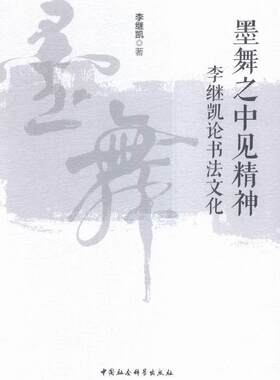 墨舞之中见精神
李继凯论书法文化
李继凯◎著
墨舞
中国社会科学出版社